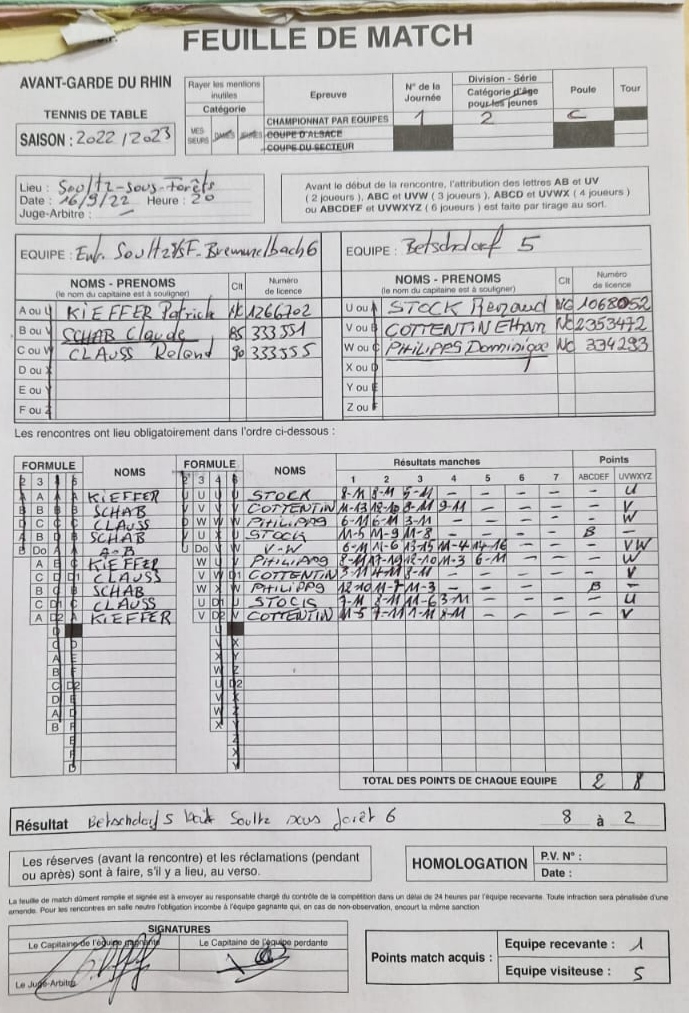 FEUILLE DE MATCH
AVANT-GARDE DU RHIN
TENNIS DE TABLE
SAISON : 2022 / 2023
Rayer les mentions inutiles
Catégorie
MES SIEURS DAMES JEUNES
Epreuve
CHAMPIONNAT PAR EQUIPES
COUPE D'ALSACE
COUPE DU SECTEUR
N° de la Journée
1
Division - Série
Catégorie d'Age pour les jeunes
2
Poule
C
Tour
Lieu : Soultz-sous-Forêts
Date : 16/9/22 Heure : 20
Juge-Arbitre :
Avant le début de la rencontre, l'attribution des lettres AB et UV
( 2 joueurs ), ABC et UVW ( 3 joueurs ), ABCD et UVWX ( 4 joueurs )
ou ABCDEF et UVWXYZ ( 6 joueurs ) est faite par tirage au sort.
EQUIPE : Ent. Soultz s/s F. Bremmelbach 6
NOMS - PRENOMS Clt Numéro de licence
(le nom du capitaine est à souligner)
A ou U KIEFFER Patrick NC 1266702
B ou V SCHAB Claude 85 333551
C ou W CLAUSS Roland 90 333555
D ou X
E ou Y
F ou Z
EQUIPE : Betschdorf 5
NOMS - PRENOMS Clt Numéro de licence
(le nom du capitaine est à souligner)
U ou A STOCK Renaud NC 1068052
V ou B COTTENTIN Ethan NC 2353472
W ou C PHILIPPS Dominique NC 334293
X ou D
Y ou E
Z ou F
Les rencontres ont lieu obligatoirement dans l'ordre ci-dessous :
FORMULE NOMS FORMULE NOMS Résultats manches Points
2 3 4 6 2 3 4 6 1 2 3 4 5 6 7 ABCDEF UVWXYZ
A KIEFFER U STOCK 8-11 8-11 5-11 - - - - - U
B SCHAB V COTTENTIN 11-13 12-10 8-11 9-11 - - - - V
C CLAUSS W PHILIPPS 6-11 6-11 3-11 - - - - - W
B SCHAB U STOCK 11-5 11-9 11-8 - - - - B -
Do A-B Do V-W 6-11 11-6 13-15 11-4 14-16 - - - VW
A KIEFFER W PHILIPPS 8-11 12-10 11-3 6-11 - - - W
C CLAUSS V COTTENTIN 3-11 4-11 8-11 - - - - - V
B SCHAB W PHILIPPS 12-10 11-7 11-3 - - - - B -
C CLAUSS U STOCK 7-11 8-11 11-6 3-11 - - - - U
A KIEFFER V COTTENTIN 11-5 7-11 8-11 - - - - V
TOTAL DES POINTS DE CHAQUE EQUIPE 2 8
Résultat Betschdorf 5 bat Soultz sous forêt 6 8 à 2
Les réserves (avant la rencontre) et les réclamations (pendant
ou après) sont à faire, s'il y a lieu, au verso.
HOMOLOGATION
P.V. N° :
Date :
La feuille de match dûment remplie et signée est à envoyer au responsable chargé du contrôle de la compétition dans un délai de 24 heures par l'équipe recevante. Toute infraction sera pénalisée d'une
amende. Pour les rencontres en salle neutre l'obligation incombe à l'équipe gagnante qui, en cas de non-observation, encourt la même sanction
SIGNATURES
Le Capitaine de l'équipe gagnante Le Capitaine de l'équipe perdante
Le Juge-Arbitre
Points match acquis :
Equipe recevante : 1
Equipe visiteuse : 5